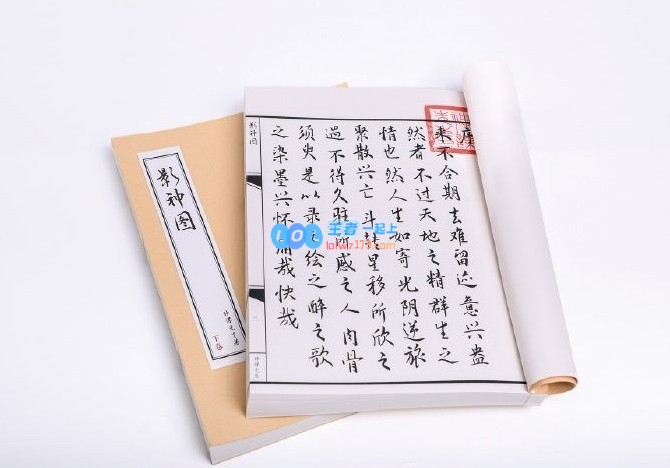 序
来不合期去难留迹意兴盎
然者不过天地之精群生之
情也然人生如寄光阴逆旅
聚散兴亡斗转星移所欣之
遇不得久驻所感之人肉骨
须臾是以录之绘之醉之歌
之染墨兴怀痛哉快哉
影神图
影神图
下卷
LOL
王者一起上